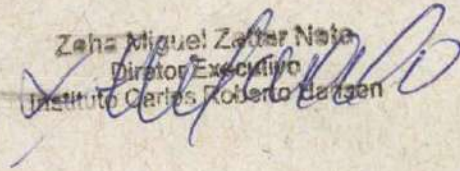 Zeha Miguel Zattar Neto
Diretor Executivo
Instituto Carlos Roberto Hansen